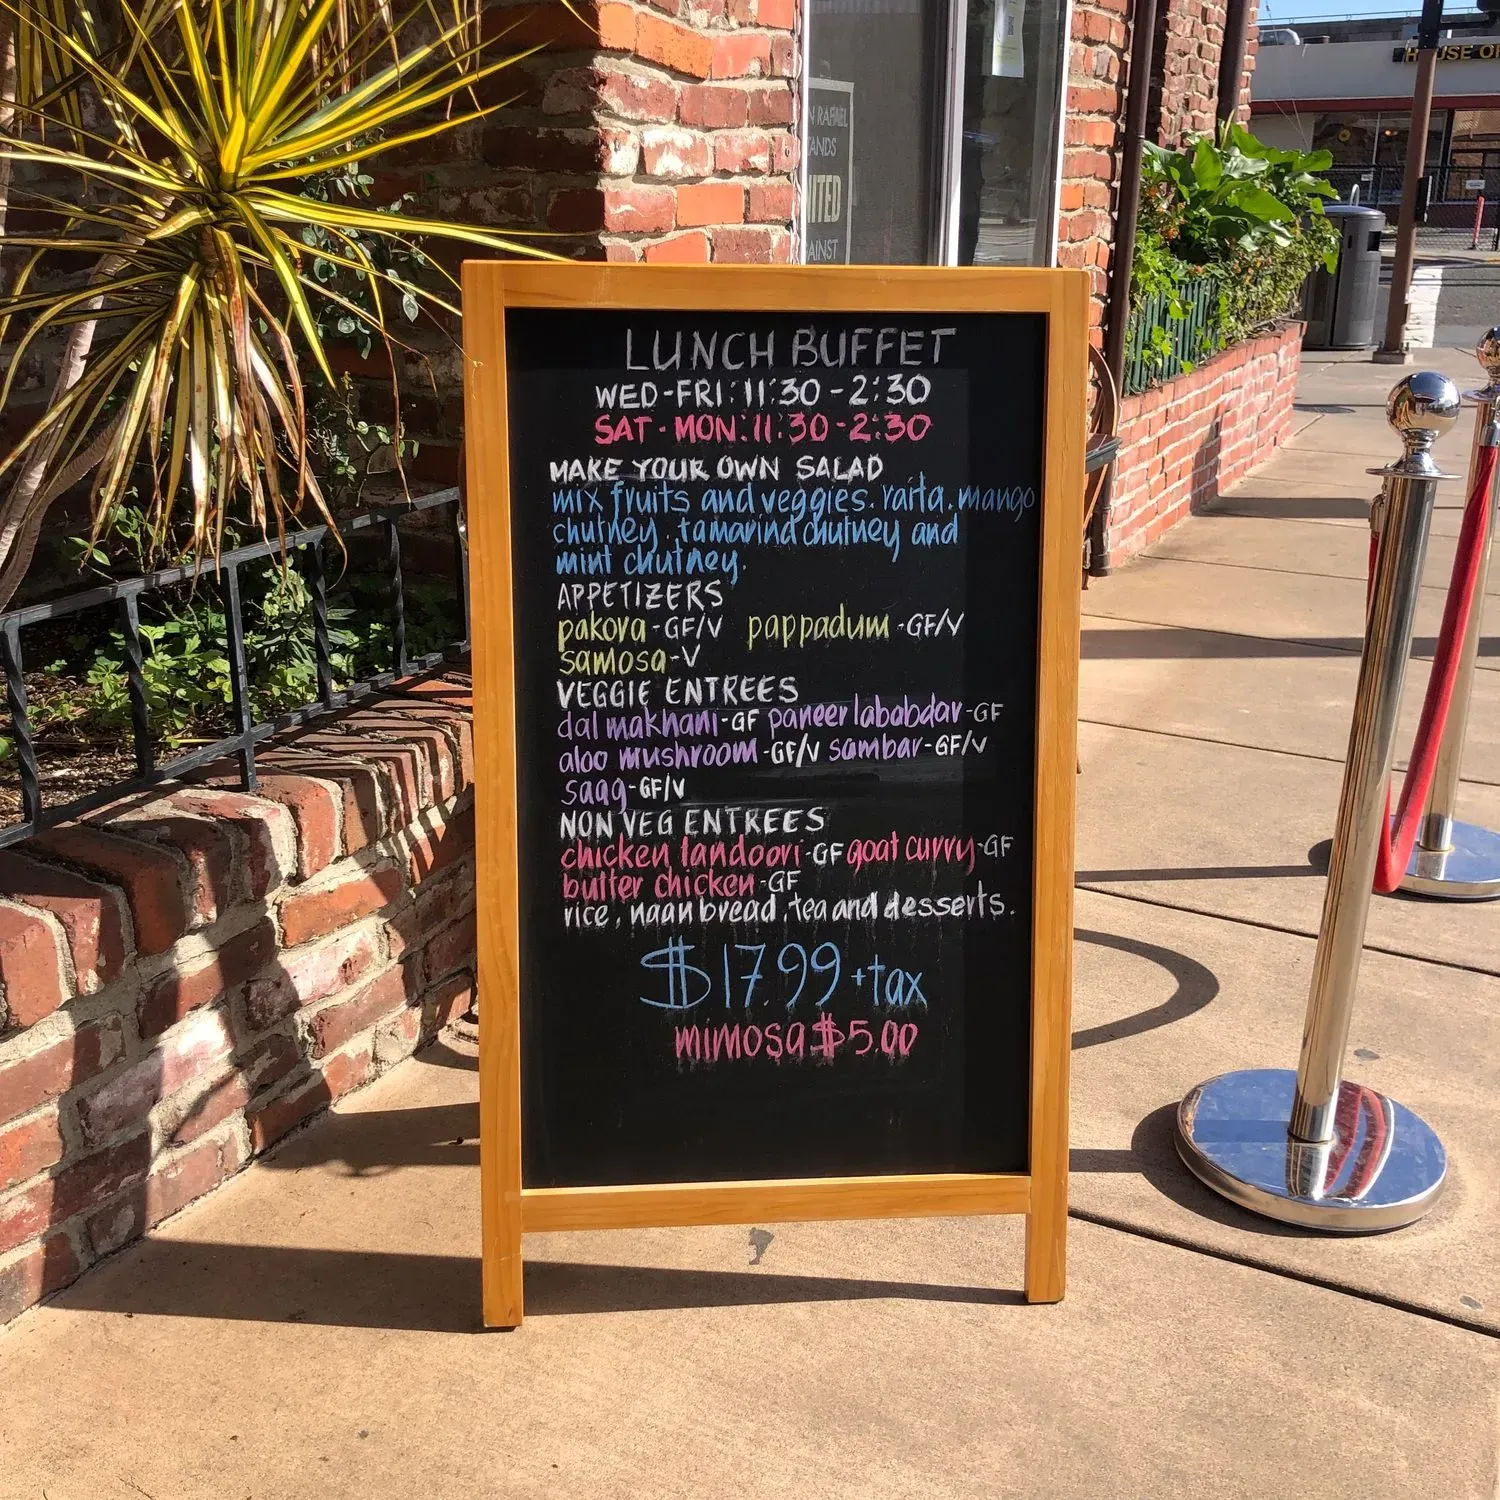 HOUSE O
N RAFAEL
ANDS
ITED
AINST
LUNCH BUFFET
WED-FRI: 11:30 - 2:30
SAT - MON: 11:30 - 2:30
MAKE YOUR OWN SALAD
mix fruits and veggies. raita. mango
chutney. tamarind chutney and
mint chutney.
APPETIZERS
pakora -GF/V pappadum -GF/V
samosa-V
VEGGIE ENTREES
dal makhani -GF paneer lababdar -GF
aloo mushroom -GF/V sambar-GF/V
saag-GF/V
NON VEG ENTREES
chicken tandoori -GF goat curry -GF
butter chicken -GF
rice, naan bread, tea and desserts.
$17.99 +tax
mimosa $5.00